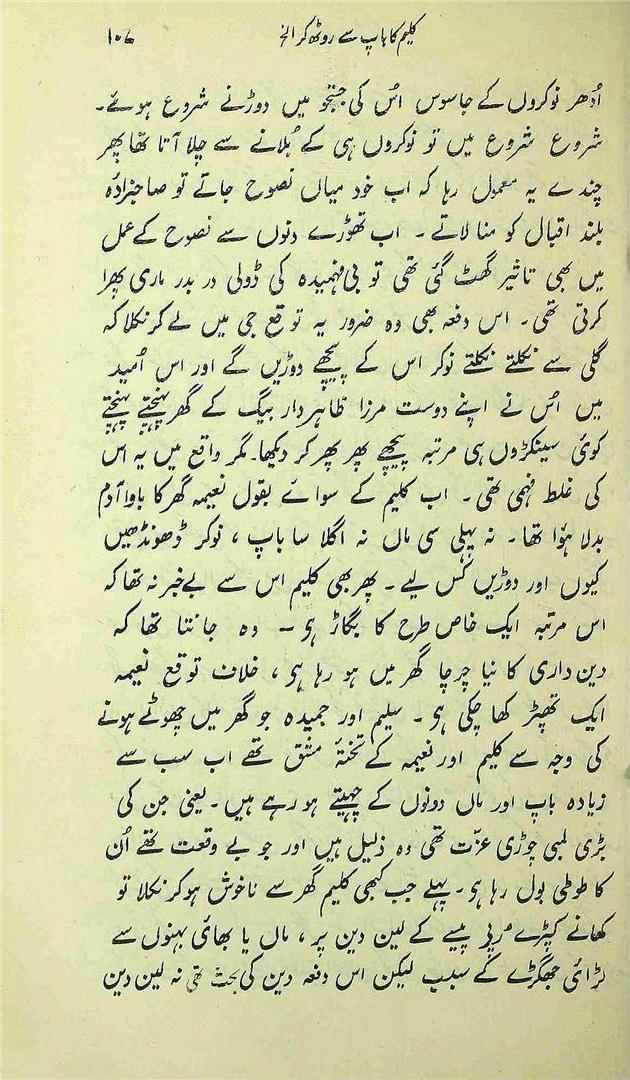 کلیم کا باپ سے روٹھ کر الخ ۱۰۷
اُدھر نوکروں کے جاسوس اُس کی جستجو میں دوڑنے شروع ہوئے۔
شروع شروع میں تو نوکروں ہی کے بُلانے سے چلا آتا تھا پھر
چندے یہ معمول رہا کہ اب خود میاں نصوح جاتے تو صاحبزادہ
بلند اقبال کو منا لاتے۔ اب تھوڑے دنوں سے نصوح کے عمل
میں بھی تاثیر گھٹ گئی تھی تو بی فہمیدہ کی ڈولی در بدر ماری پھرا
کرتی تھی۔ اس دفعہ بھی وہ ضرور یہ توقع جی میں لے کر نکلا کہ
گلی سے نکلتے نکلتے نوکر اس کے پیچھے دوڑیں گے اور اس اُمید
میں اُس نے اپنے دوست مرزا ظاہردار بیگ کے گھر پہنچتے پہنچتے
کوئی سینکڑوں ہی مرتبہ پیچھے پھر پھر کر دیکھا۔ مگر واقع میں یہ اس
کی غلط فہمی تھی۔ اب کلیم کے سوائے بقول نعیمہ گھر کا باوا آدم
بدلا ہؤا تھا۔ نہ پہلی سی ماں نہ اگلا سا باپ، نوکر ڈھونڈھیں
کیوں اور دوڑیں کس لیے۔ پھر بھی کلیم اس سے بے خبر نہ تھا کہ
اس مرتبہ ایک خاص طرح کا بگاڑ ہی — وہ جانتا تھا کہ
دین داری کا نیا چرچا گھر میں ہو رہا ہی، خلاف توقع نعیمہ
ایک تھپڑ کھا چکی ہی۔ سلیم اور حمیدہ جو گھر میں چھوٹے ہونے
کی وجہ سے کلیم اور نعیمہ کے تختۂ مشق تھے اب سب سے
زیادہ باپ اور ماں دونوں کے چہیتے ہو رہے ہیں۔ یعنی جن کی
بڑی لمبی چوڑی عزّت تھی وہ ذلیل ہیں اور جو بے وقعت تھے اُن
کا طوطی بول رہا ہی۔ پہلے جب کبھی کلیم گھر سے ناخوش ہو کر نکلا تو
کھانے کپڑے پر پیسے کے لین دین پر، ماں یا بھائی بہنوں سے
لڑائی جھگڑے کے سبب لیکن اس دفعہ دین کی بحث تھی نہ لین دین